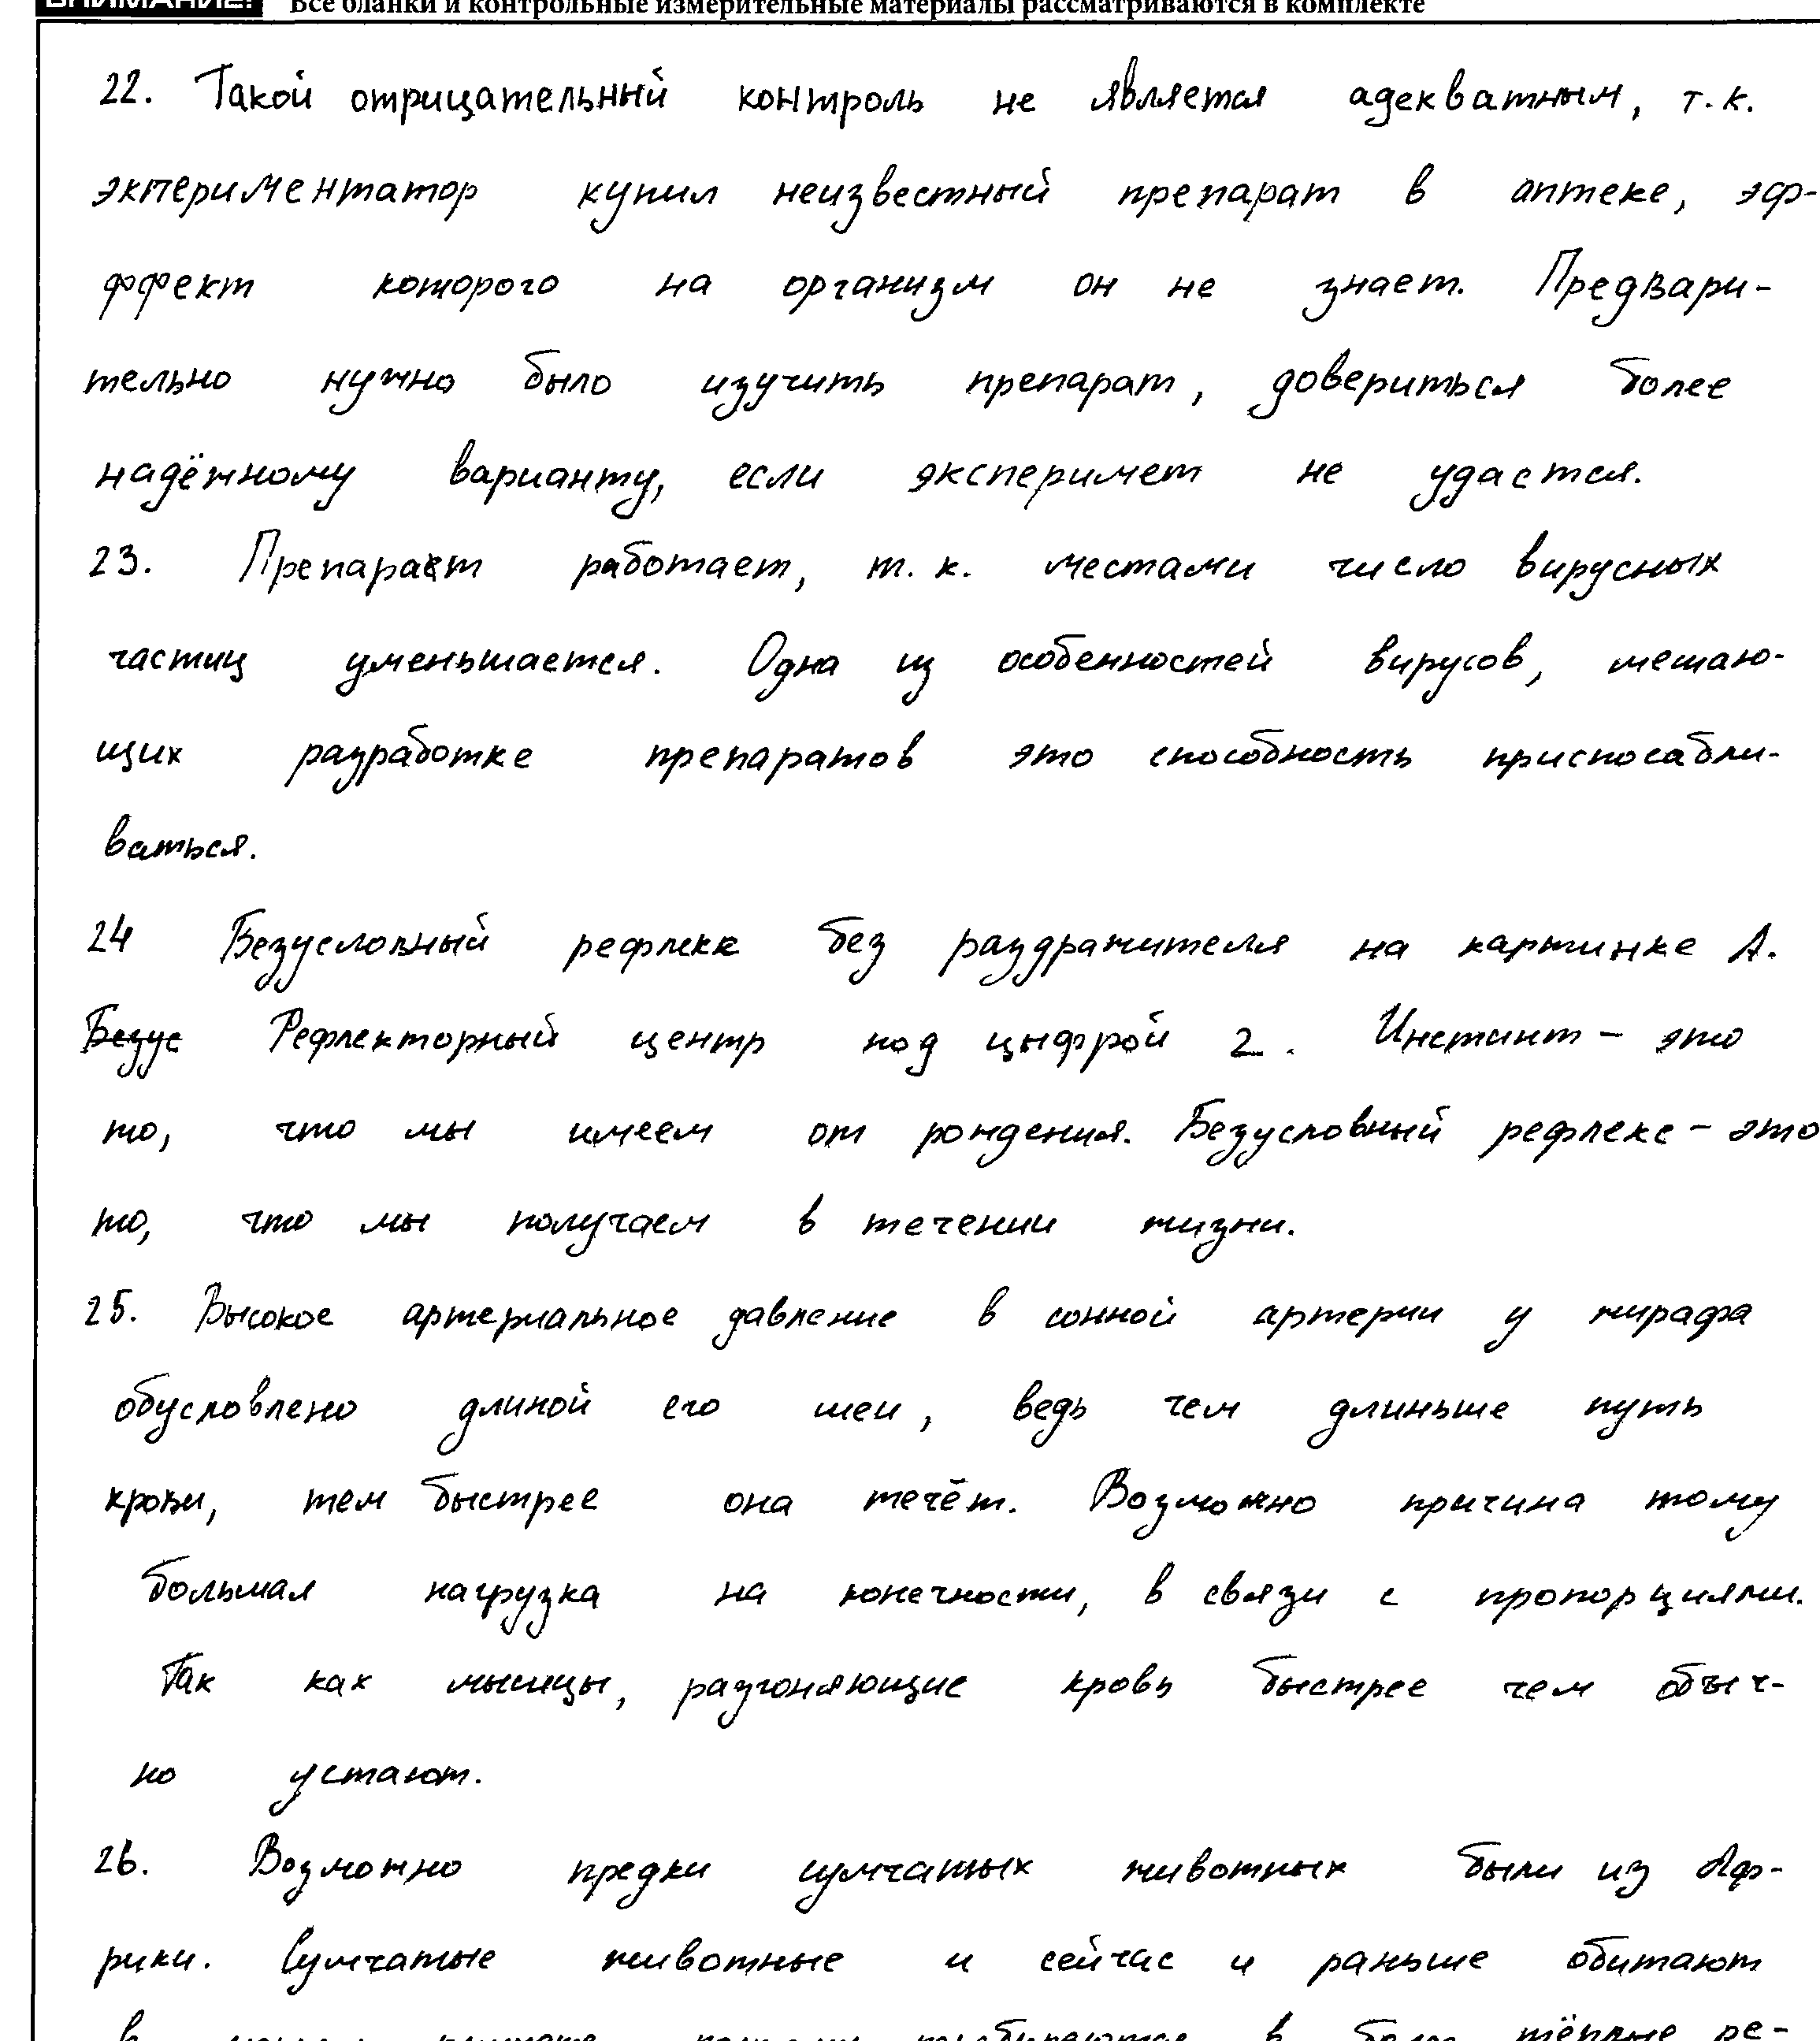 ВНИМАНИЕ! Все бланки и контрольные измерительные материалы рассматриваются в комплекте
22. Такой отрицательный контроль не является адекватным, т.к.
эктериментатор купил неизвестный препарат в аптеке, эф-
ффект которого на организм он не знает. Предвари-
тельно нужно было изучить препарат, довериться более
надёжному варианту, если эксперимет не удастся.
23. Препарат работает, т.к. местами число вирусных
частиц уменьшается. Одна из особенностей вирусов, мешаю-
щих разработке препаратов это способность приспосабли-
ваться.
24 Безусловный рефлекс без раздражителя на картинке А.
Безус Рефлекторный центр под цыфрой 2. Инстинт – это
то, что мы имеем от рождения. Безусловный рефлекс – это
то, что мы получаем в течении жизни.
25. Высокое артериальное давление в сонной артерии у жирафа
обусловлено длиной его шеи, ведь чем длиньше путь
крови, тем быстрее она течёт. Возможно причина тому
большая нагрузка на конечности, в связи с пропорциями.
Так как мышцы, разгоняющие кровь быстрее чем обыч-
но устают.
26. Возможно предки сумчатых животных были из Аф-
рики. Сумчатые животные и сейчас и раньше обитают
в тёплые ре-